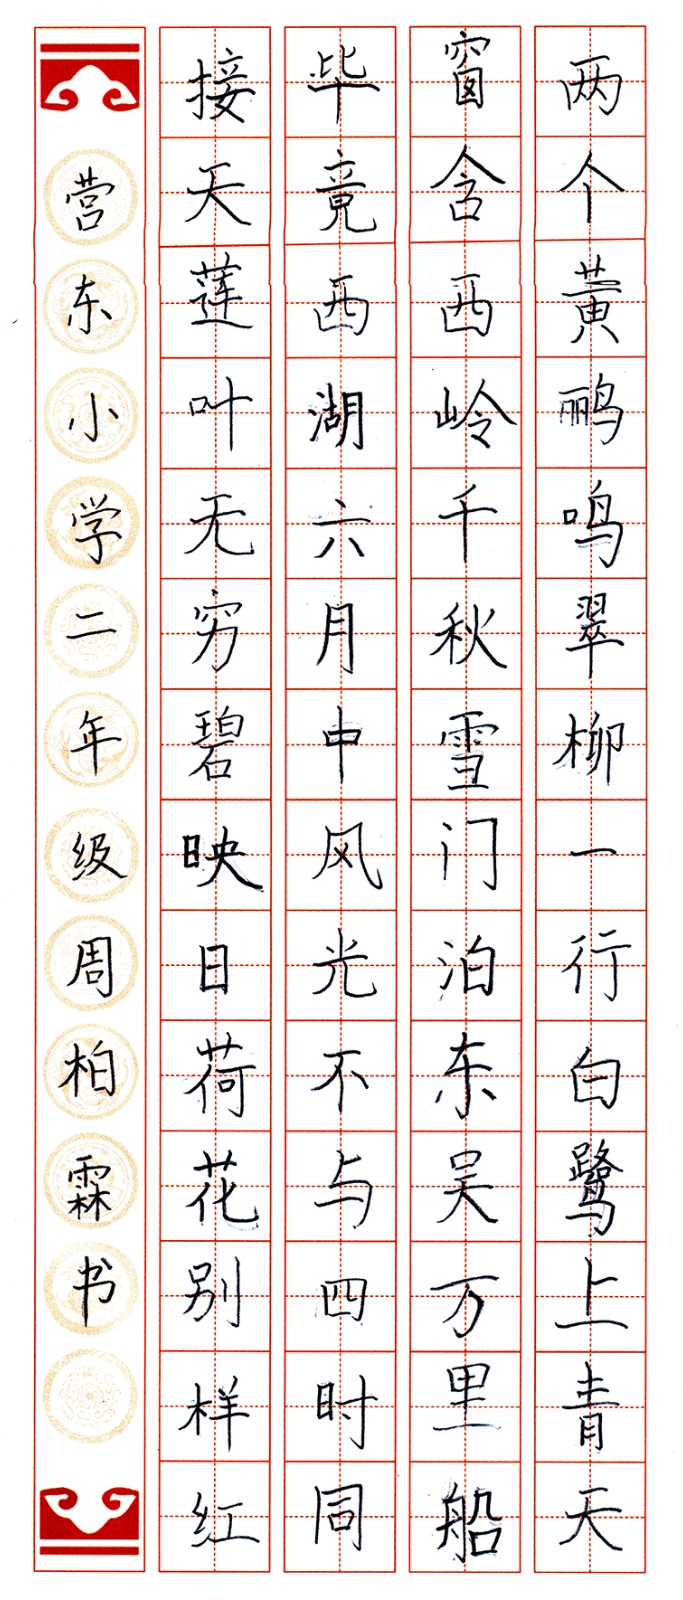 两个黄鹂鸣翠柳一行白鹭上青天
窗含西岭千秋雪门泊东吴万里船
毕竟西湖六月中风光不与四时同
接天莲叶无穷碧映日荷花别样红
营东小学二年级周柏霖书